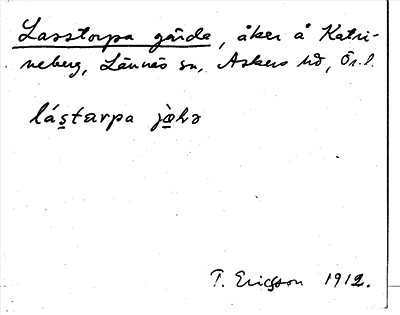 Lasstorpa gärde, åker å Katri-
neberg, Lännäs sn, Askers hd, Ör. l.
lástarpa
T. Ericsson 1912.